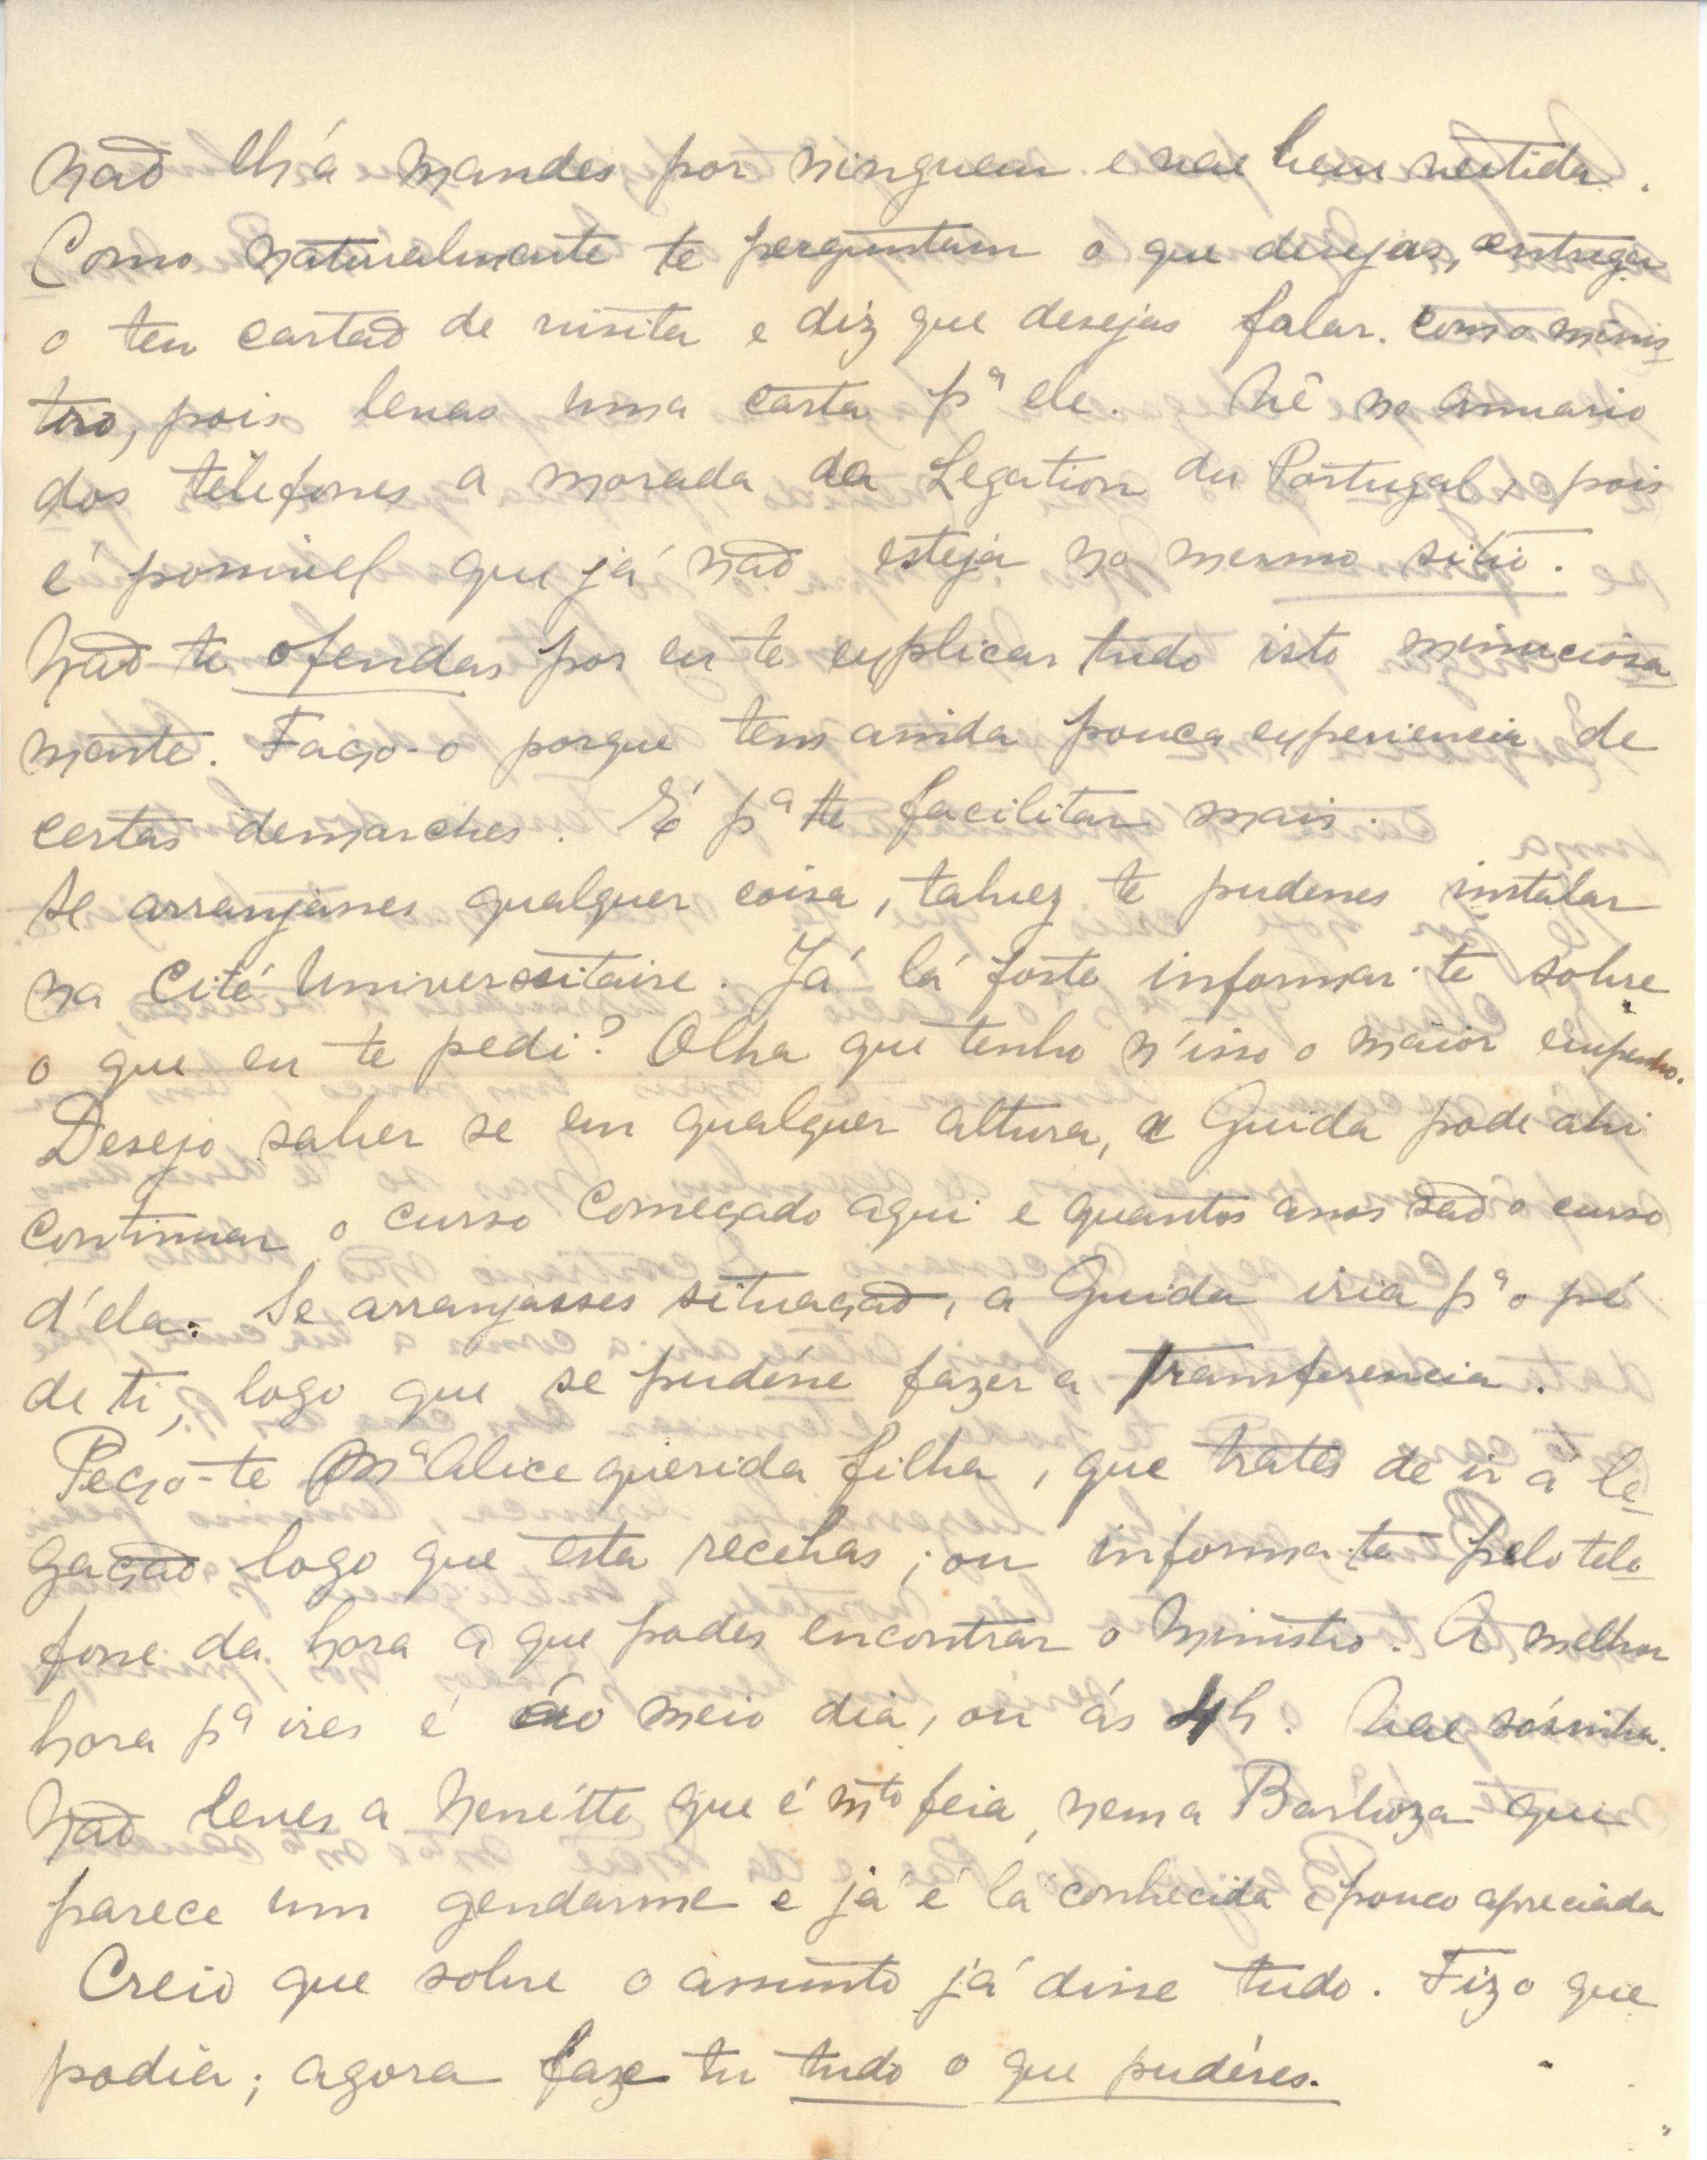 não lh'a mandes por ninguem e vae bem vestida.
Como naturalmente te perguntam o que desejas, entrega
o teu cartão de visita e diz que desejas falar com o minis-
tro, pois levas uma carta pª ele. Vê no anuario
dos telefones a morada da Legation du Portugal, pois
é possivel que já não esteja no mesmo sitio.
Não te ofendas por eu te explicar tudo isto minuciosa-
mente. Faço-o porque tens ainda pouca experiencia de
certas demarches. É pª te facilitar mais.
Se arranjasses qualquer coisa, talvez te pudesses instalar
na Cité Universitaire. Já lá foste informar-te sobre
o que eu te pedi? Olha que tenho n'isso o maior empenho.
Desejo saber se em qualquer altura, a Guida pode ahi
continuar o curso começado aqui e quantos anos são o curso
d'ela. Se arranjasses situação, a Guida iria pª o pé
de ti, logo que se pudésse fazer a transferencia.
Peço-te Mª Alice querida filha, que trates de ir á le-
gação logo que esta recebas; ou informa-te pelo tele-
fone da hora a que podes encontrar o Ministro. A melhor
hora pª ires é ao meio dia, ou ás 4h. Vae sósinha.
Não leves a Nenétte que é mto feia, nem a Barboza que
parece um gendarme e já é lá conhecida e pouco apreciada
Creio que sobre o assunto já disse tudo. Fiz o que
podia; agora faze tu tudo o que pudéres.